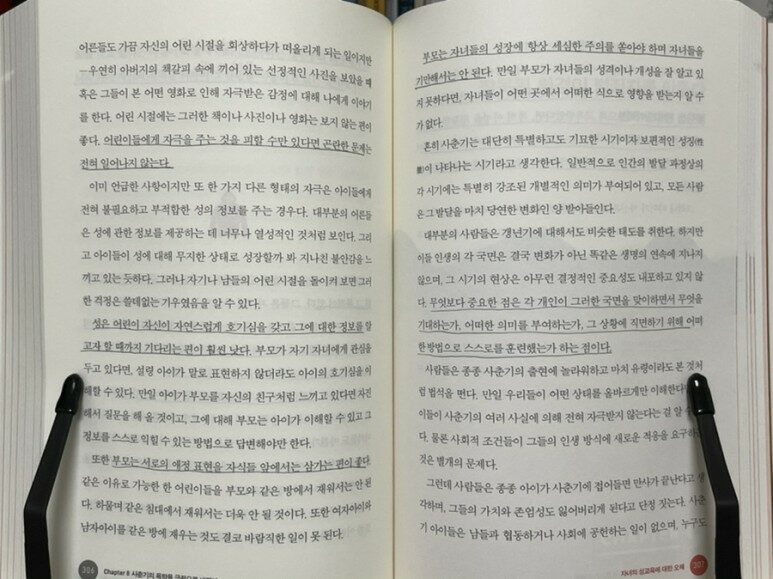 어른들도 가끔 자신의 어린 시절을 회상하다가 떠올리게 되는 일이지만
—우연히 아버지의 책갈피 속에 끼어 있는 선정적인 사진을 보았을 때
혹은 그들이 본 어떤 영화로 인해 자극받은 감정에 대해 나에게 이야기
를 한다. 어린 시절에는 그러한 책이나 사진이나 영화는 보지 않는 편이
좋다. 어린이들에게 자극을 주는 것을 피할 수만 있다면 곤란한 문제는
전혀 일어나지 않는다.
이미 언급한 사항이지만 또 한 가지 다른 형태의 자극은 아이들에게
전혀 불필요하고 부적합한 성의 정보를 주는 경우다. 대부분의 어른들
은 성에 관한 정보를 제공하는 데 너무나 열성적인 것처럼 보인다. 그리
고 아이들이 성에 대해 무지한 상태로 성장할까 봐 지나친 불안감을 느
끼고 있는 듯하다. 그러나 자기나 남들의 어린 시절을 돌이켜 보면 그러
한 걱정은 쓸데없는 기우였음을 알 수 있다.
성은 어린이 자신이 자연스럽게 호기심을 갖고 그에 대한 정보를 알
고자 할 때까지 기다리는 편이 훨씬 낫다. 부모가 자기 자녀에게 관심을
두고 있다면, 설령 아이가 말로 표현하지 않더라도 아이의 호기심을 이
해할 수 있다. 만일 아이가 부모를 자신의 친구처럼 느끼고 있다면 자진
해서 질문을 해 올 것이고, 그에 대해 부모는 아이가 이해할 수 있고 그
정보를 스스로 익힐 수 있는 방법으로 답변해야만 한다.
또한 부모는 서로의 애정 표현을 자식들 앞에서는 삼가는 편이 좋다.
같은 이유로 가능한 한 어린이들을 부모와 같은 방에서 재워서는 안 된
다. 하물며 같은 침대에서 재워서는 더욱 안 될 것이다. 또한 여자아이와
남자아이를 같은 방에 재우는 것도 결코 바람직한 일이 못 된다.
306 Chapter 8 사춘기의
부모는 자녀들의 성장에 항상 세심한 주의를 쏟아야 하며 자녀들을
기만해서는 안 된다. 만일 부모가 자녀들의 성격이나 개성을 잘 알고 있
지 못하다면, 자녀들이 어떤 곳에서 어떠한 식으로 영향을 받는지 알 수
가 없다.
흔히 사춘기는 대단히 특별하고도 기묘한 시기이자 보편적인 성징(性
徵)이 나타나는 시기라고 생각한다. 일반적으로 인간의 발달 과정상의
각 시기에는 특별히 강조된 개별적인 의미가 부여되어 있고, 모든 사람
은 그 발달을 마치 당연한 변화인 양 받아들인다.
대부분의 사람들은 갱년기에 대해서도 비슷한 태도를 취한다. 하지만
이들 인생의 각 국면은 결국 변화가 아닌 똑같은 생명의 연속에 지나지
않으며, 그 시기의 현상은 아무런 결정적인 중요성도 내포하고 있지 않
다. 무엇보다 중요한 점은 각 개인이 그러한 국면을 맞이하면서 무엇을
기대하는가, 어떠한 의미를 부여하는가, 그 상황에 직면하기 위해 어떠
한 방법으로 스스로를 훈련했는가 하는 점이다.
사람들은 종종 사춘기의 출현에 놀라워하고 마치 유령이라도 본 것처
럼 법석을 떤다. 만일 우리들이 어떤 상태를 올바르게만 이해한다면
이들이 사춘기의 여러 사실에 의해 전혀 자극받지 않는다는 걸 알 수
다. 물론 사회적 조건들이 그들의 인생 방식에 새로운 적응을 요구하
것은 별개의 문제다.
그런데 사람들은 종종 아이가 사춘기에 접어들면 만사가 끝난다고 생
각하며, 그들의 가치와 존엄성도 잃어버리게 된다고 단정 짓는다. 사춘
기 아이들은 남들과 협동하거나 사회에 공헌하는 일이 없으며, 누구도
자녀의 성교육에 대한 오해 307